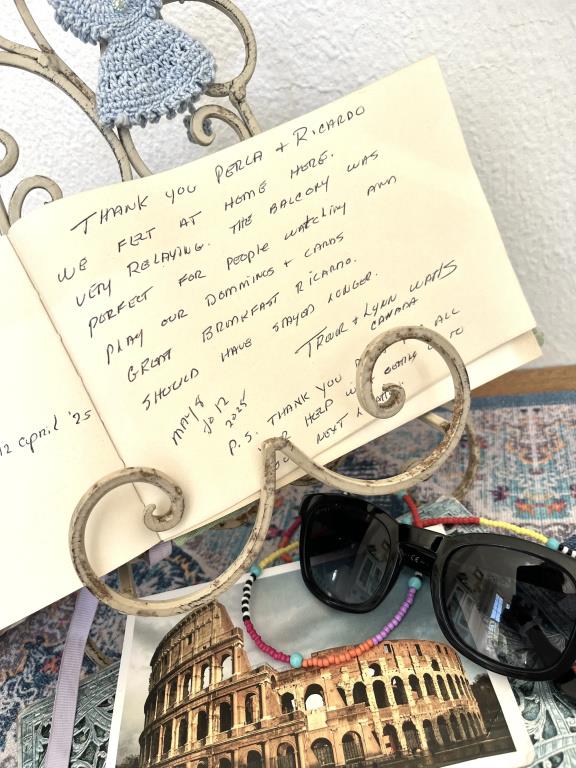 THANK YOU PERLA + RICARDO
WE FELT AT HOME HERE.
VERY RELAXING. THE BALCONY WAS
PERFECT FOR PEOPLE WATCHING AND
PLAY OUR DOMMINOS + CARDS
GREAT BREAKFAST RICARDO.
SHOULD HAVE STAYED LONGER.
TREVOR + LYNN WATTS
CANADA
MAY 8
TO 12
2025
P.S. THANK YOU ALL
HELP WITH GETTING US TO
NEXT
12 April '25
CE